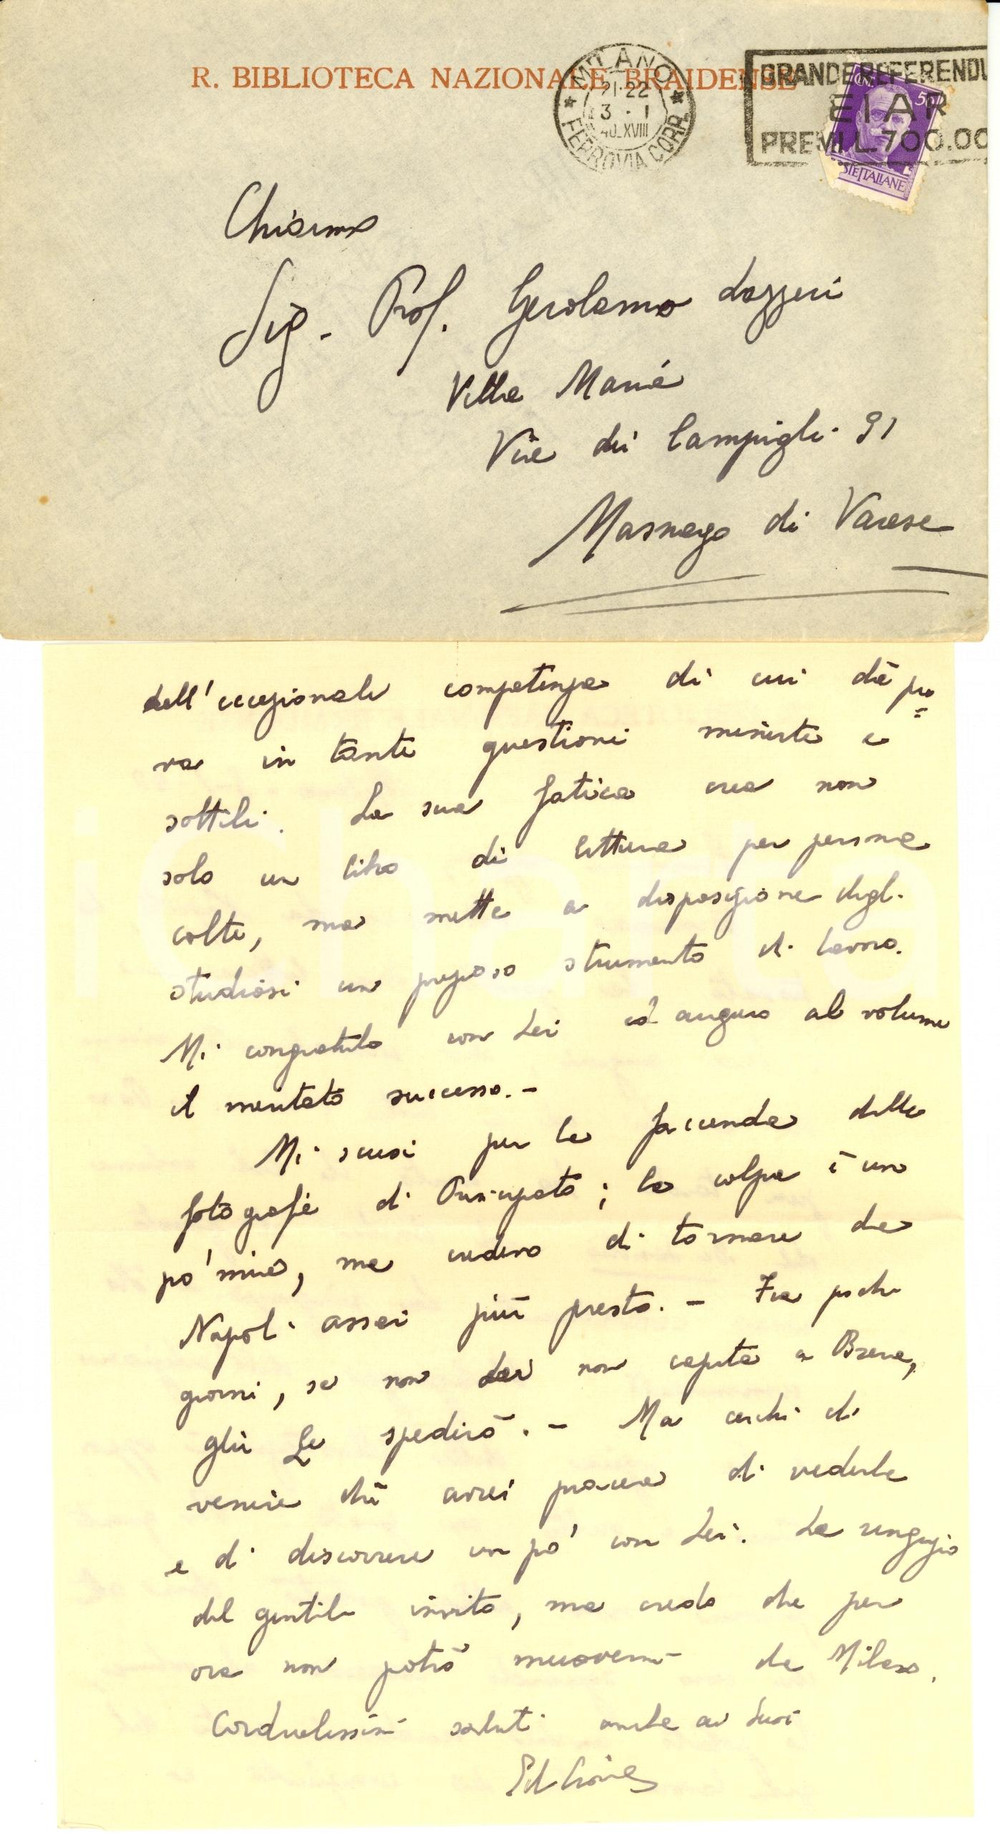 R. BIBLIOTECA NAZIONALE BRAIDENSE
MILANO
21-22
3 - I
40.XVIII
FERROVIA CORR.
GRANDE REFERENDU
EIAR
PREMI L.700.00
50
POSTE ITALIANE
Chiarmo
Sig. Prof. Gerolamo Lazzeri
Villa Maria
Via dei Campigli 31
Masnago di Varese
dell'eccezionale competenza di cui dà pro=
va in tante questioni minute e
sottili. La sua fatica crea non
solo un libro di lettura per persone
colte, ma mette a disposizione degli
studiosi un prezioso strumento di lavoro.
Mi congratulo con Lei ed auguro al volume
il meritato successo.-
Mi scusi per la faccenda delle
fotografie di Principato; la colpa è un
po' mia, ma credevo di tornare da
Napoli assai più presto. - Fra pochi
giorni, se non Lei non capita a Brera,
gliele spedirò. - Ma cerchi di
venire chè avrei piacere di vederla
e di discorrere un po' con Lei. La ringrazio
del gentile invito, ma credo che per
ora non potrò muovermi da Milano.
Cordialissimi saluti anche ai Suoi